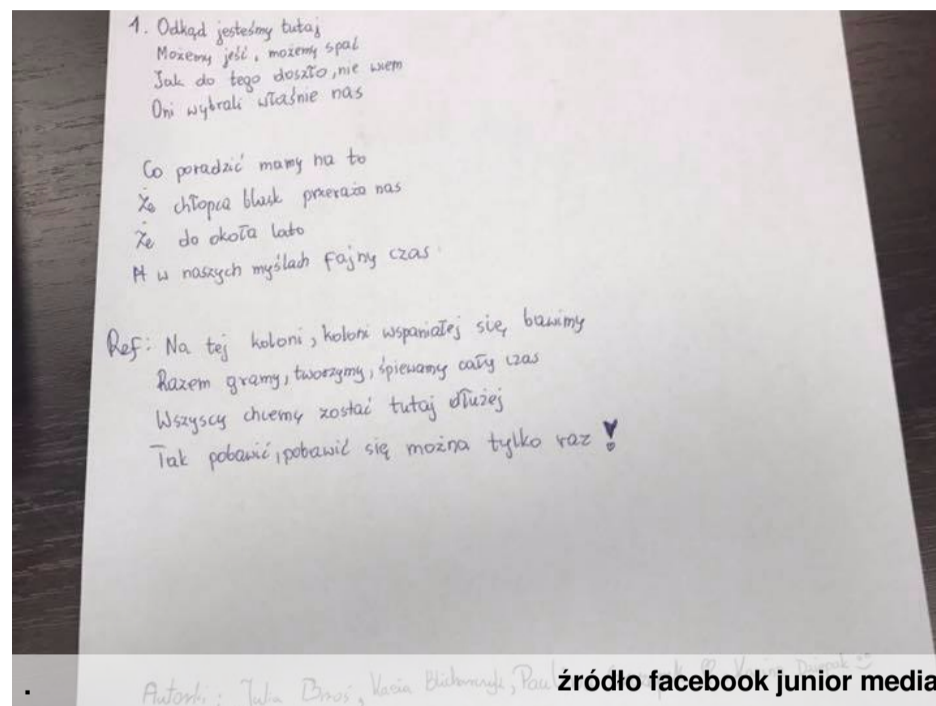 1. Odkąd jesteśmy tutaj
Możemy jeść, możemy spać
Jak do tego doszło, nie wiem
Oni wybrali właśnie nas
Co poradzić mamy na to
Że chłopca blask przeraża nas
Że do okoła lato
A w naszych myślach fajny czas.
Ref: Na tej koloni, koloni wspaniałej się bawimy
Razem gramy, tworzymy, śpiewamy cały czas
Wszyscy chcemy zostać tutaj dłużej
Tak pobawić, pobawić się można tylko raz!
Autorki: Julia Kasia
. źródło facebook junior media